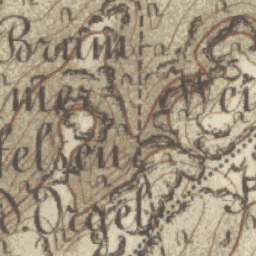 Brum
mer
felsen
d. Orgel
Wei